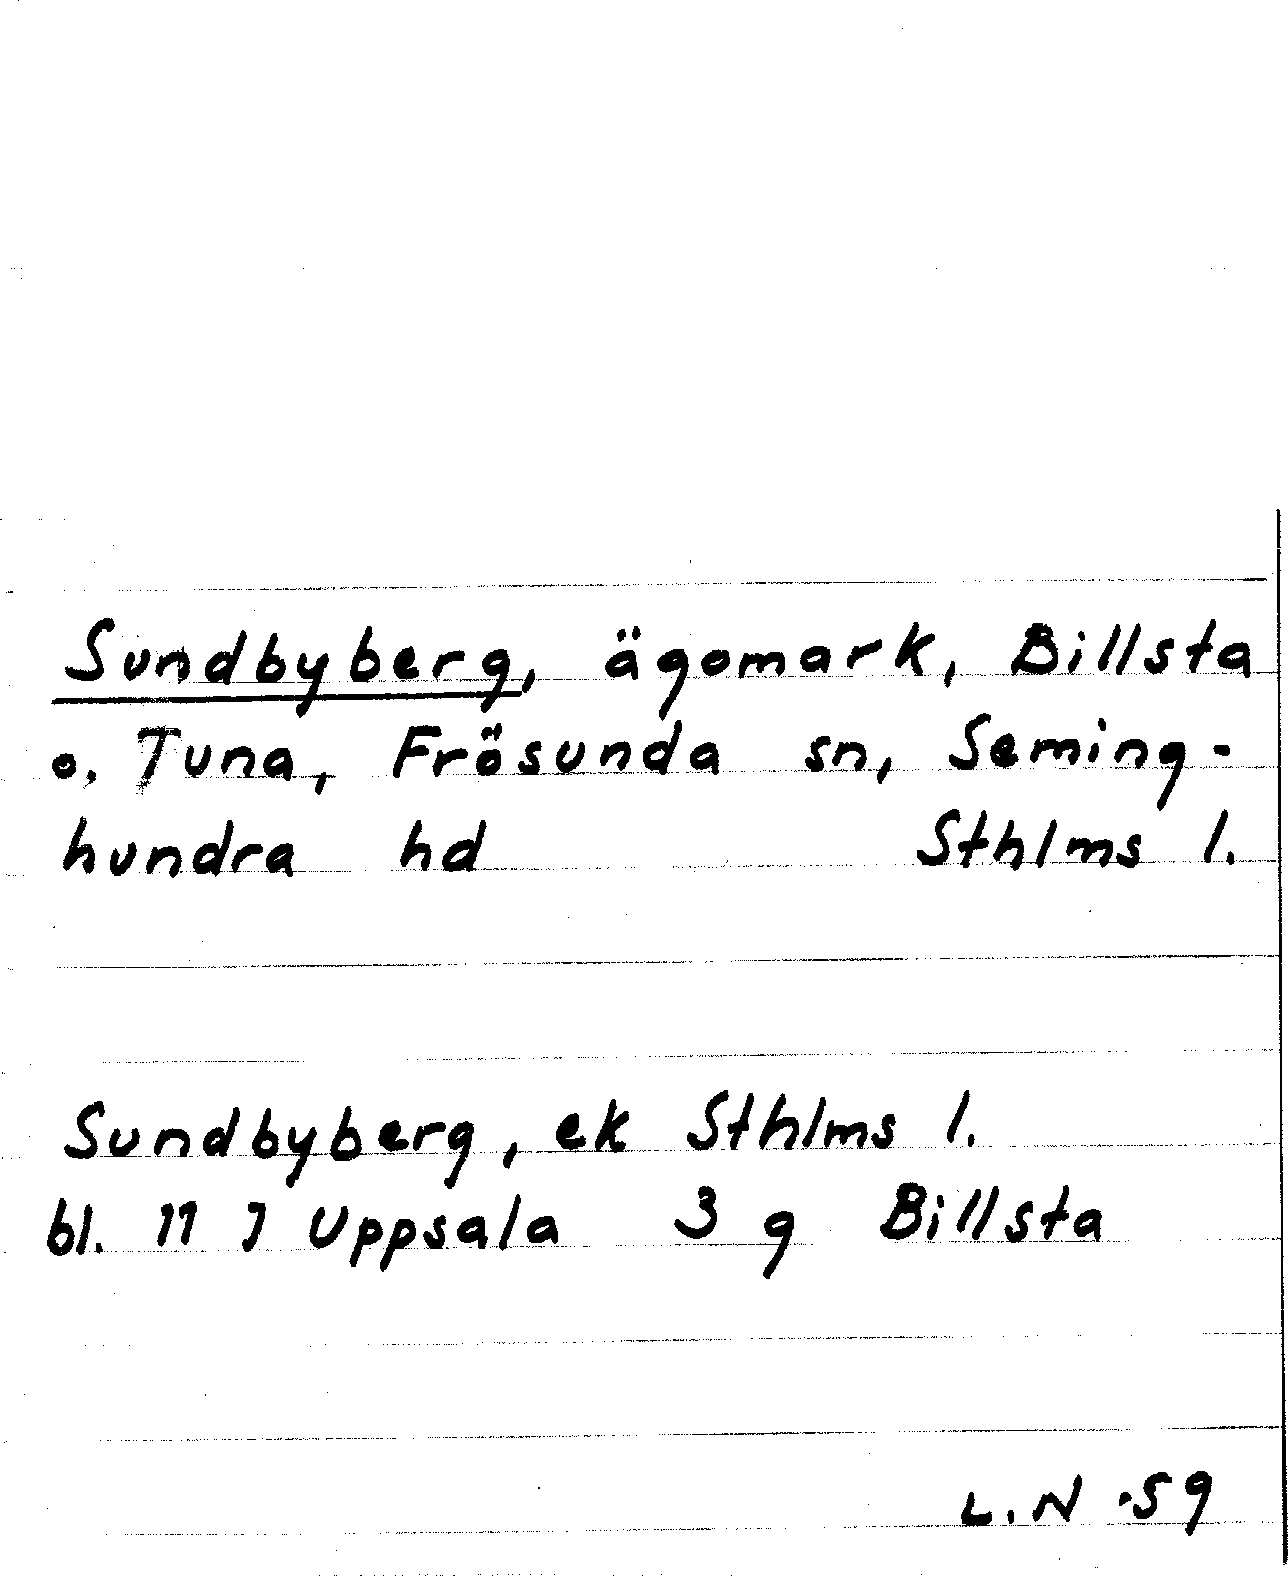 Sundbyberg, ägomark, Billsta
o. Tuna, Frösunda sn, Seming-
hundra hd Sthlms l.
Sundbyberg, ek Sthlms l.
bl. 11 J Uppsala 3 g Billsta
L.N -59